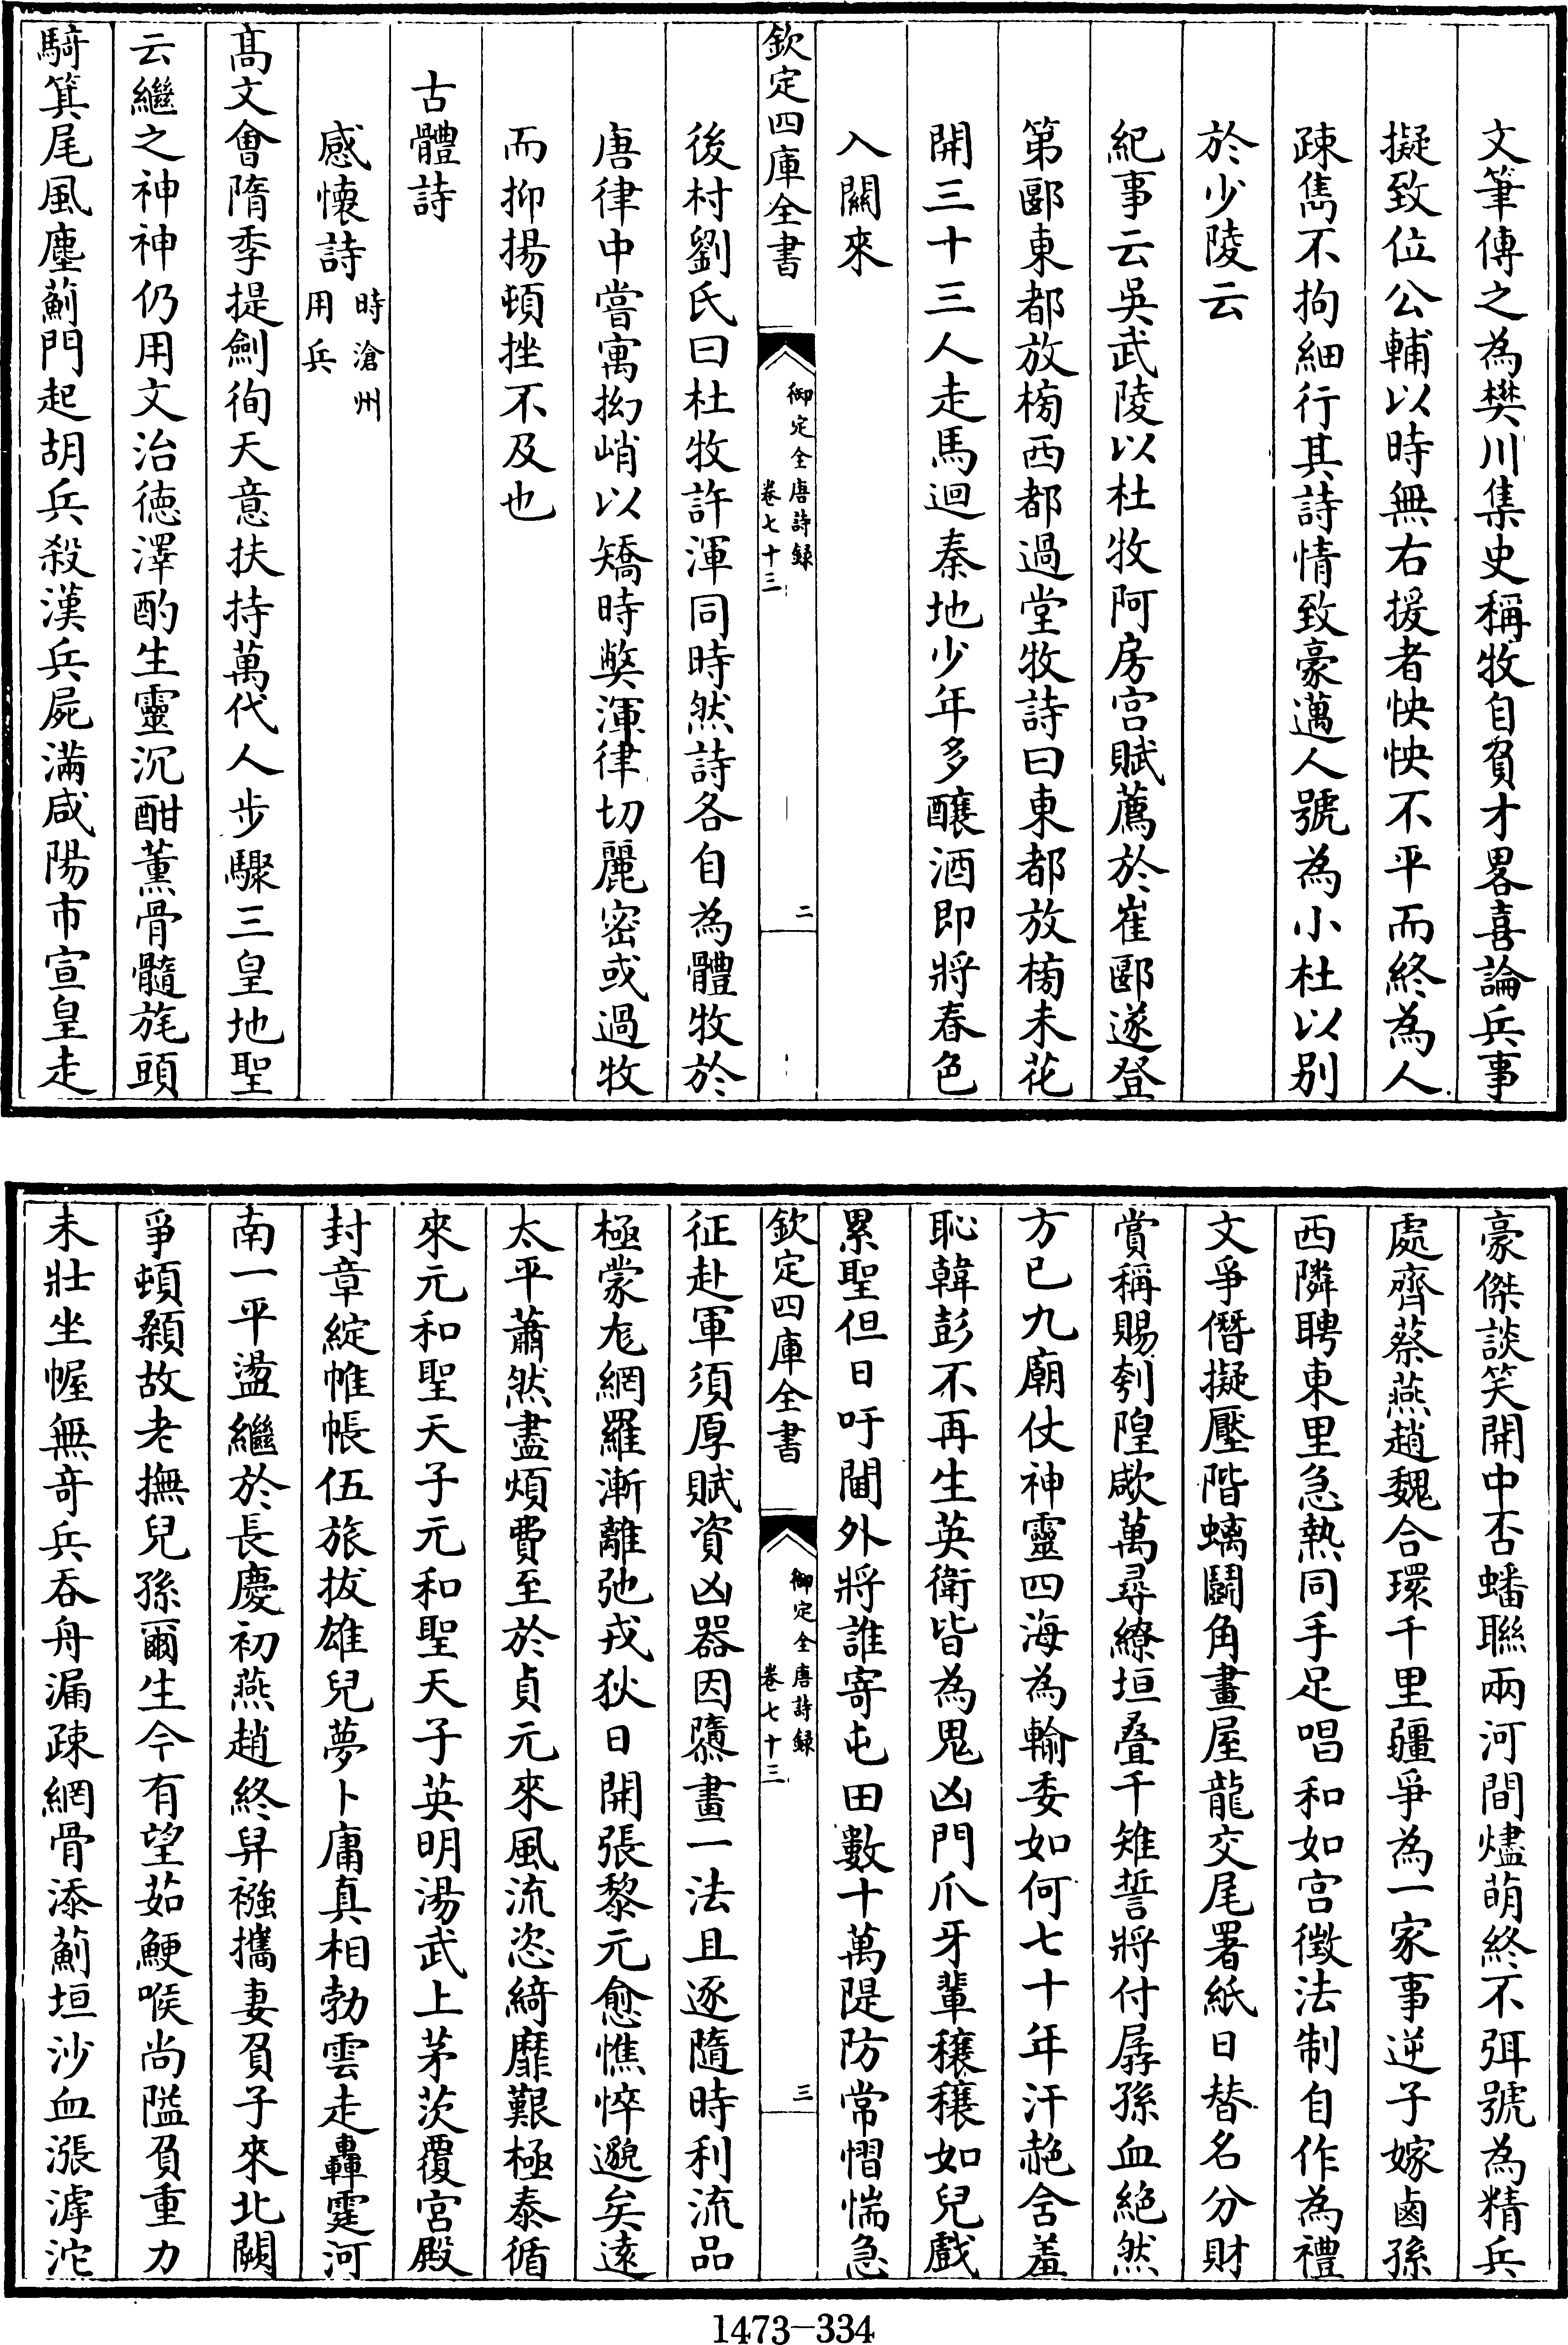 文筆傳之為樊川集史稱牧自負才畧喜論兵事
擬致位公輔以時無右援者怏怏不平而終為人
疎雋不拘細行其詩情致豪邁人號為小杜以别
於少陵云
紀事云吳武陵以杜牧阿房宫賦薦於崔郾遂登
第郾東都放榜西都過堂牧詩曰東都放榜未花
開三十三人走馬迴秦地少年多釀酒即將春色
入關來
欽定四庫全書
御定全唐詩録
卷七十三
二
後村劉氏曰杜牧許渾同時然詩各自為體牧於
唐律中嘗寓拗峭以矯時獘渾律切麗密或過牧
而抑揚頓挫不及也
古體詩
感懷詩
時滄州
用兵
髙文會隋季提劍徇天意扶持萬代人步驟三皇地聖
云繼之神神仍用文治徳澤酌生靈沉酣薰骨髓旄頭
騎箕尾風塵薊門起胡兵殺漢兵屍滿咸陽市宣皇走
豪傑談笑開中否蟠聯兩河間燼萌終不弭號為精兵
處齊蔡燕趙魏合環千里疆爭為一家事逆子嫁鹵孫
西隣聘東里急熱同手足唱和如宫徴法制自作為禮
文爭僭擬壓階螭鬭角畫屋龍交尾署紙日替名分財
賞稱賜刳隍歛萬尋繚垣叠千雉誓將付孱孫血絶然
方已九廟仗神靈四海為輸委如何七十年汗赩舍羞
恥韓彭不再生英衛皆為鬼凶門爪牙輩穰穰如兒戲
累聖但日吁閫外將誰寄屯田數十萬隄防常慴惴急
欽定四庫全書
御定全唐詩録
卷七十三
三
征赴軍須厚賦資凶器因隳畫一法且逐隨時利流品
極蒙尨網羅漸離弛戎狄日開張黎元愈憔悴邈矣逺
太平蕭然盡煩費至於貞元來風流恣綺靡艱極泰循
來元和聖天子元和聖天子英明湯武上茅茨覆宫殿
封章綻帷帳伍旅拔雄兒夢卜庸真相勃雲走轟霆河
南一平盪繼於長慶初燕趙終舁襁攜妻負子來北闕
爭頓顙故老撫兒孫爾生今有望茹鯁喉尚隘負重力
未壯坐幄無竒兵吞舟漏疎網骨添薊垣沙血漲滹沱
1473—334